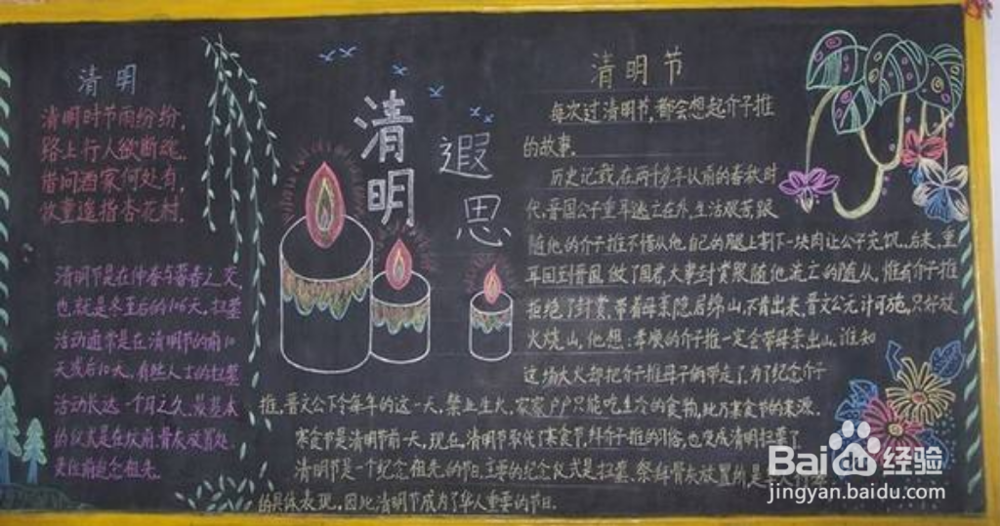 清明
清明时节雨纷纷,
路上行人欲断魂。
借问酒家何处有,
牧童遥指杏花村。
清明节是在仲春与暮春之交,
也就是冬至后的106天。扫墓
活动通常是在清明节的前10
天或后10天。有些人士的扫墓
活动长达一个月之久。最基本
的仪式是在坟前、骨灰放置处
灵位前追念祖先。
清明
遐思
清明节
每次过清明节,都会想起介子推
的故事。
历史记载,在两千多年以前的春秋时
代,晋国公子重耳逃亡在外,生活艰苦,跟
随他的介子推不惜从他自己的腿上割下一块肉让公子充饥。后来,重
耳回到晋国,做了国君,大事封赏跟随他流亡的随从,惟有介子推
拒绝了封赏,带着母亲隐居绵山,不肯出来,晋文公无计可施,只好放
火烧山,他想:孝顺的介子推一定会带母亲出山。谁知
这场大火却把介子推母子俩带走了,为了纪念介子
推,晋文公下令每年的这一天,禁止生火,家家户户只能吃生冷的食物,此乃寒食节的来源。
寒食节是清明节前一天,现在,清明节取代了寒食节,拜介子推的习俗,也变成清明扫墓了
清明节是一个纪念祖先的节日。主要的纪念仪式是扫墓、祭拜骨灰放置所,是
的具体表现。因此,清明节成为了华人重要的节日。
Baidu经验
jingyan.baidu.com